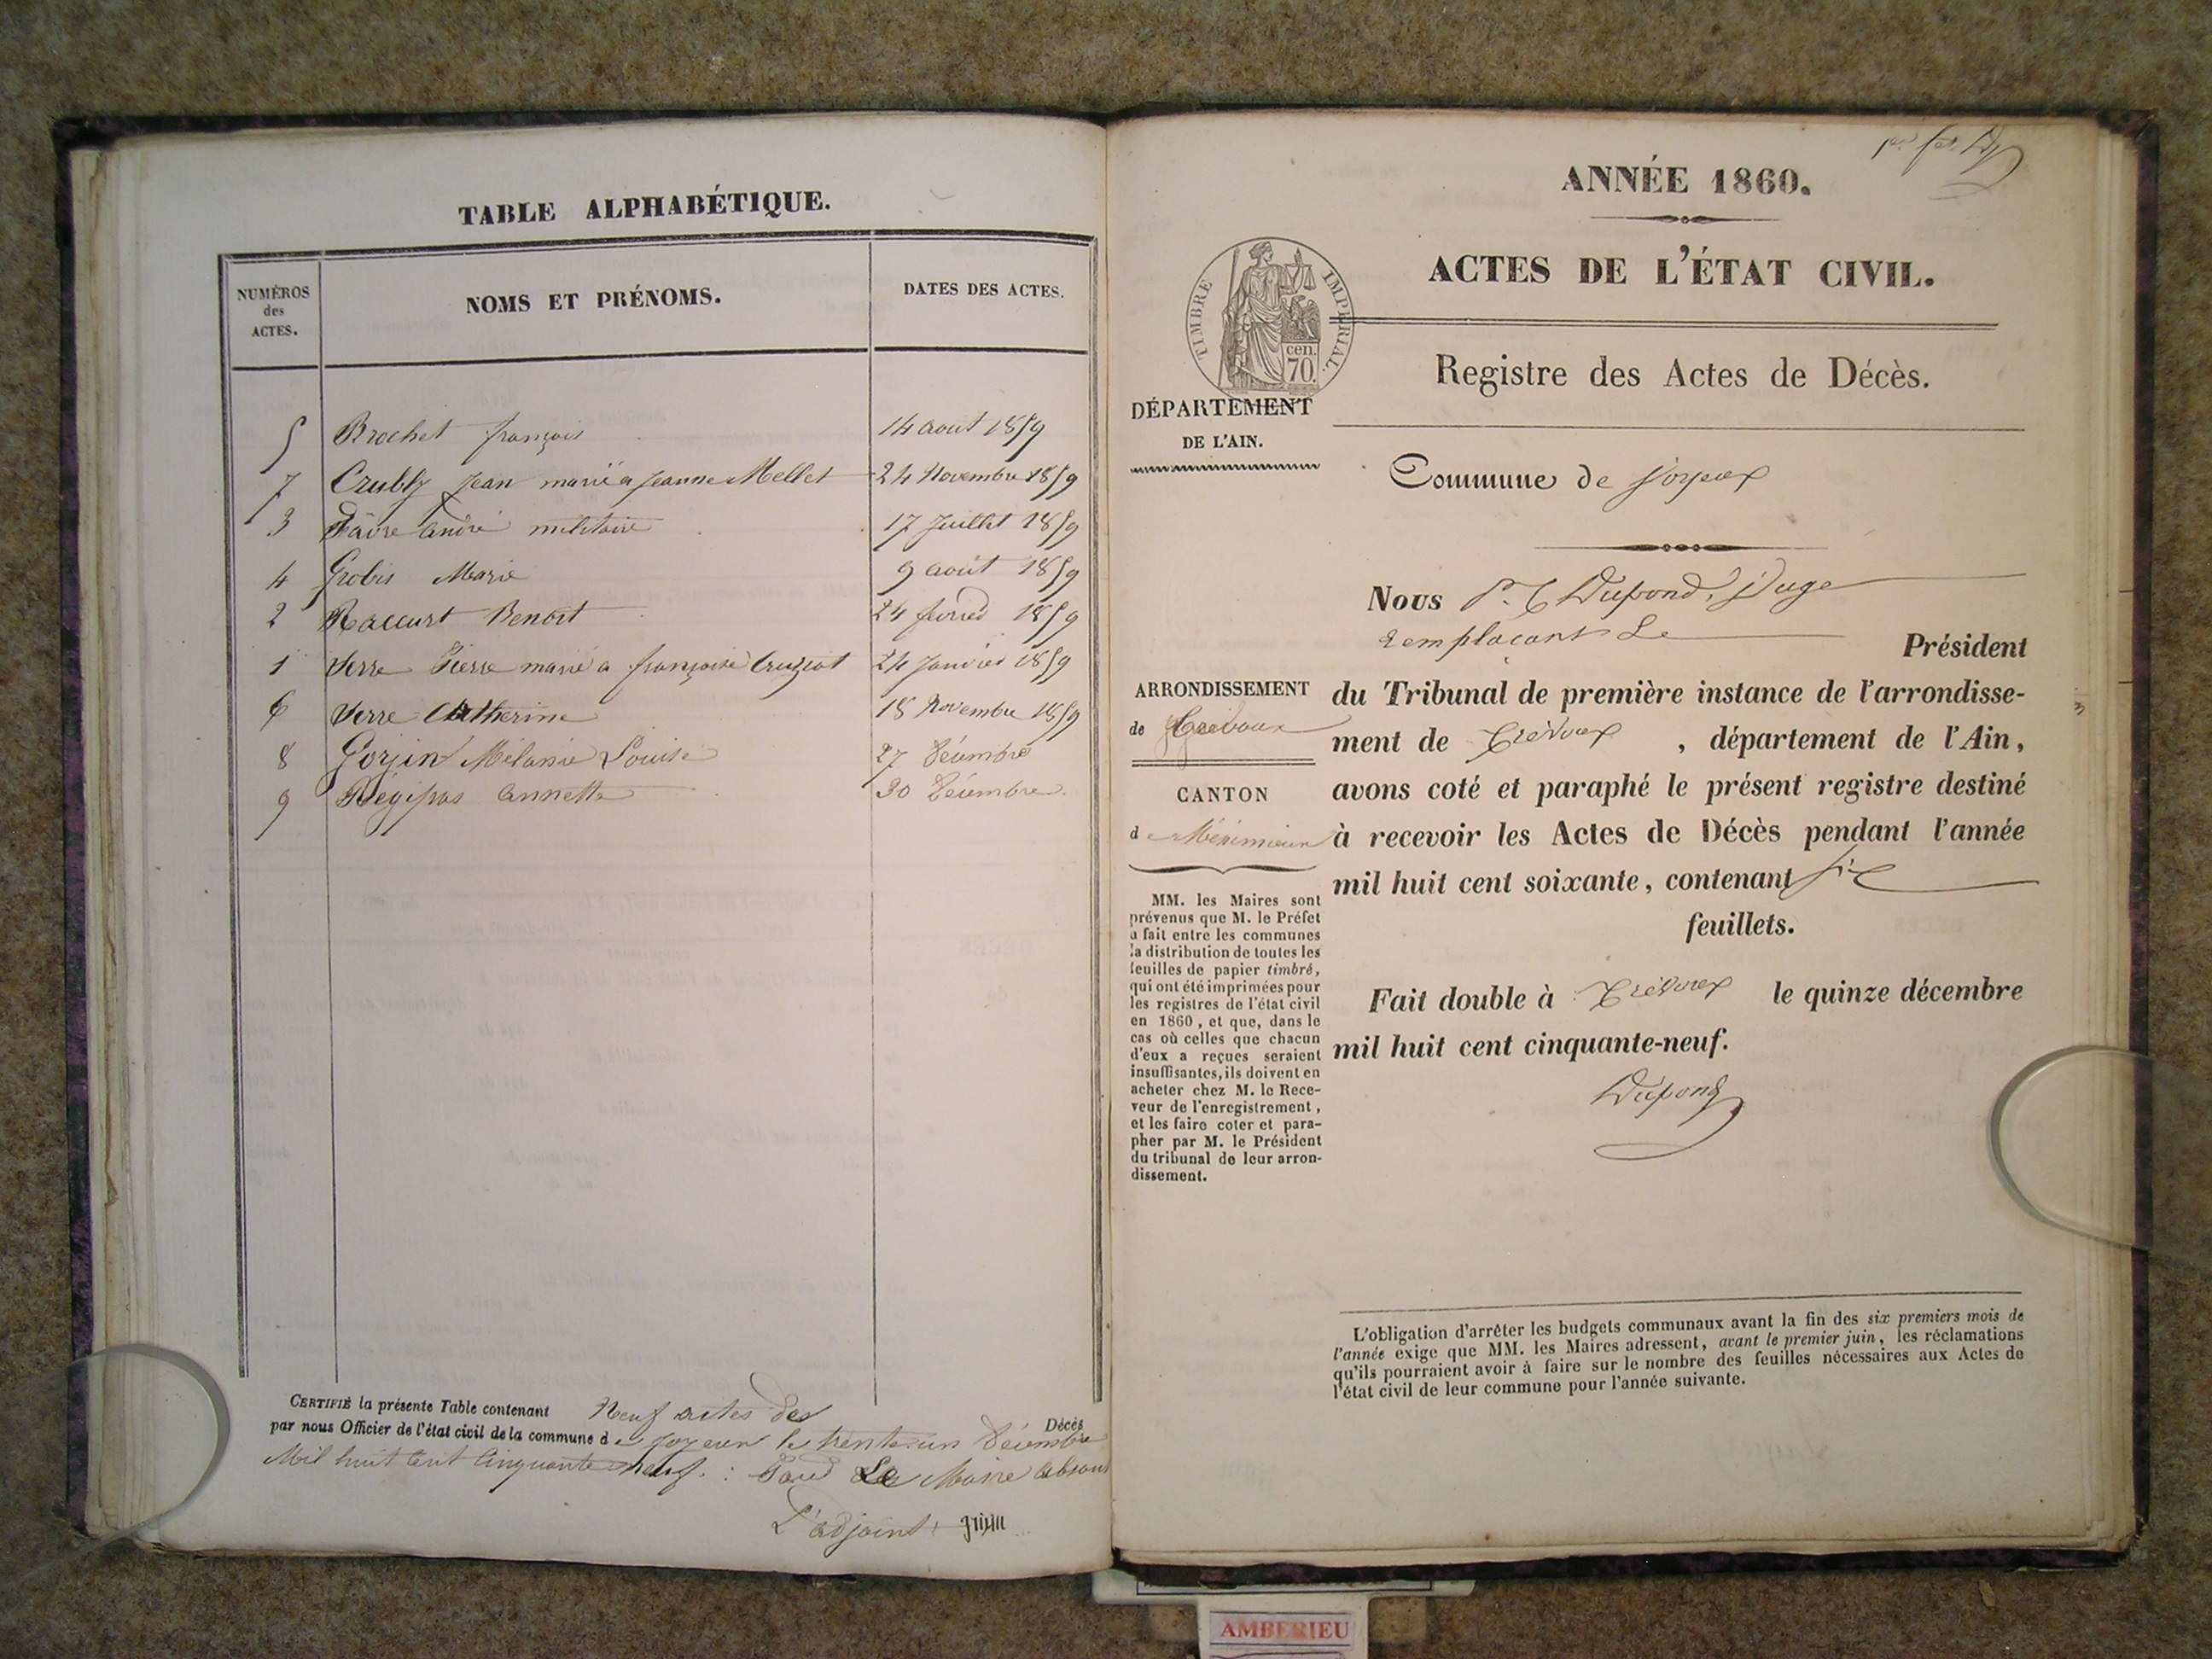 TABLE ALPHABÉTIQUE.
NUMÉROS
des
ACTES.
NOMS ET PRÉNOMS.
DATES DES ACTES.
5 Brochet françois 14 aout 1859
7 Jean marié a Jeanne Mellet 24 Novembre 1859
3 Favre andré militaire 17 Juillet 1859
4 Grobis Marie 9 août 1859
2 Raccurt Benoît 24 février 1859
1 Verre Pierre marié a françoise 24 Janvier 1859
6 Verre Catherine 18 Novembre 1859
8 Gorjin Mélanie Louise 27 Décembre
9 Régipas Annette 30 Décembre
CERTIFIÉ la présente Table contenant Neuf actes des Décès
par nous Officier de l'état civil de la commune de Joyeux le trente un Décembre
Mil huit Cent Cinquante neuf. : Pour Le Maire absent
L'adjoint
ANNÉE 1860.
ACTES DE L'ÉTAT CIVIL.
TIMBRE IMPÉRIAL.
cen.
70.
Registre des Actes de Décès.
DÉPARTEMENT
DE L'AIN.
Commune de Joyeux
Nous Dupond, Juge
remplaçant Le Président
ARRONDISSEMENT
de Trévoux
CANTON
de Méximieux
MM. les Maires sont
prévenus que M. le Préfet
a fait entre les communes
la distribution de toutes les
feuilles de papier timbré,
qui ont été imprimées pour
les registres de l'état civil
en 1860, et que, dans le
cas où celles que chacun
d'eux a reçues seraient
insuffisantes, ils doivent en
acheter chez M. le Rece-
veur de l'enregistrement,
et les faire coter et para-
pher par M. le Président
du tribunal de leur arron-
dissement.
du Tribunal de première instance de l'arrondisse-
ment de Trévoux, département de l'Ain,
avons coté et paraphé le présent registre destiné
à recevoir les Actes de Décès pendant l'année
mil huit cent soixante, contenant six
feuillets.
Fait double à Trévoux le quinze décembre
mil huit cent cinquante-neuf.
Dupond
L'obligation d'arrêter les budgets communaux avant la fin des six premiers mois de
l'année exige que MM. les Maires adressent, avant le premier juin, les réclamations
qu'ils pourraient avoir à faire sur le nombre des feuilles nécessaires aux Actes de
l'état civil de leur commune pour l'année suivante.
AMBERIEU